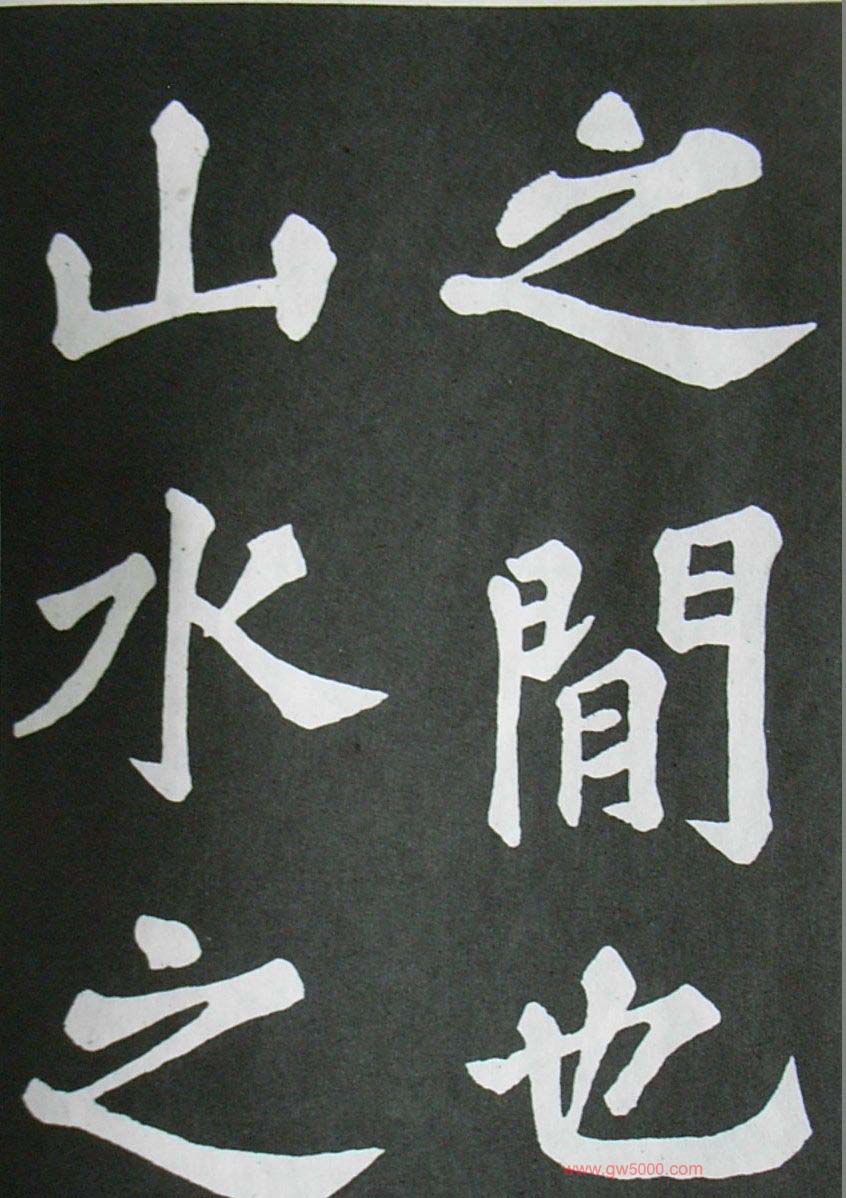 之閒也
山水之
www.gw5000.com